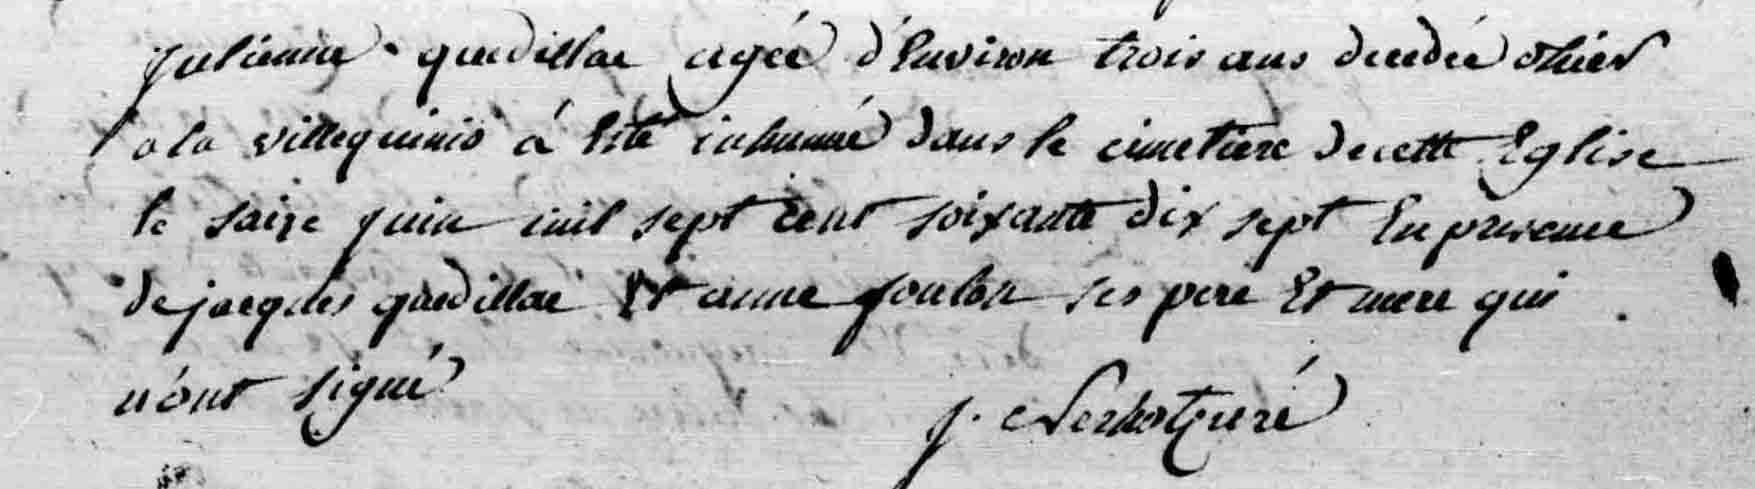 julienne quedillac agée d'Environ trois ans decedée d'hier
a la villequinio à Eté inhumé dans le cimetiere de cette Eglise
le saize juin mil sept cent soixante dix sept En presence
de jacques quedillac Et anne foulon ses pere Et mere qui
n'ont signé
j.